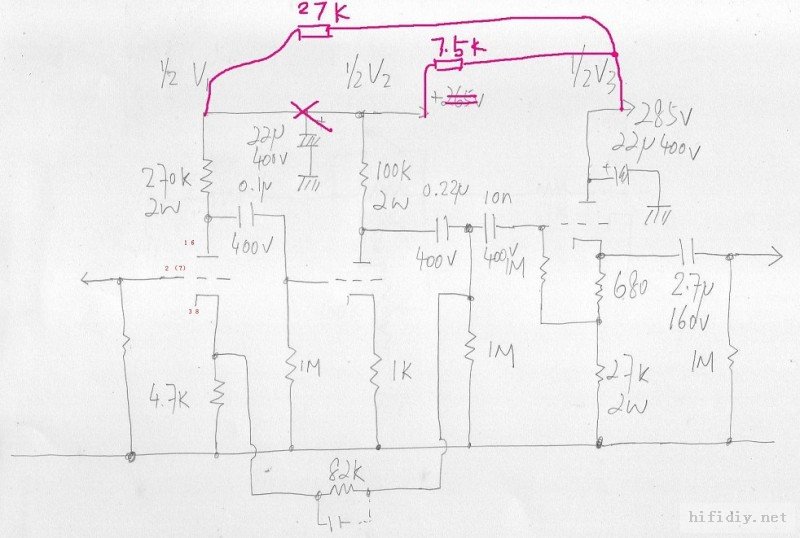 27K
7.5K
½ V1
½ V2
½ V3
+
285V
22μ
400V
+
22μ 400V
+
270K
2W
0.1μ
400V
100K
2W
0.22μ
400V
10n
400V
1M
1 6
2 (7)
3 8
680
2.7μ
160V
4.7K
1M
1K
1M
27K
2W
1M
82K
hifidiy.net